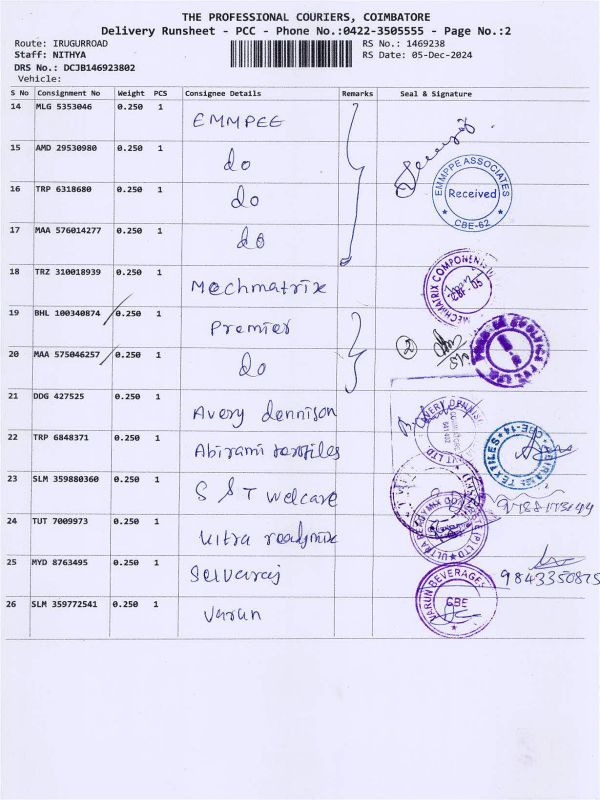 THE PROFESSIONAL COURIERS, COIMBATORE
Delivery Runsheet - PCC - Phone No.:0422-3505555 - Page No.:2
Route: IRUGURROAD
Staff: NITHYA
DRS No.: DCJB146923802
Vehicle:
RS No.: 1469238
RS Date: 05-Dec-2024
S No Consignment No Weight PCS Consignee Details Remarks Seal & Signature
14 MLG 5353046 0.250 1 EMMPEE
15 AMD 29530980 0.250 1 do
16 TRP 6318680 0.250 1 do
EMMPPE ASSOCIATES
Received
CBE-62
17 MAA 576014277 0.250 1 do
18 TRZ 310018939 0.250 1 Mechmatrix
MECHMATRIX COMPONENTS
19 BHL 100340874 0.250 1 Premier
20 MAA 575046257 0.250 1 do
2
21 DDG 427525 0.250 1 Avery dennison
AVERY DENNISON
LTD
22 TRP 6848371 0.250 1 Abirami textiles
TEXTILES
CBE-14
23 SLM 359880360 0.250 1 S S T welcare
24 TUT 7009973 0.250 1 Ultra readymix
ULTRA READYMIX
(P) LTD
25 MYD 8763495 0.250 1 Selvaraj
9843350875
26 SLM 359772541 0.250 1 Varun
VARUN BEVERAGES
CBE